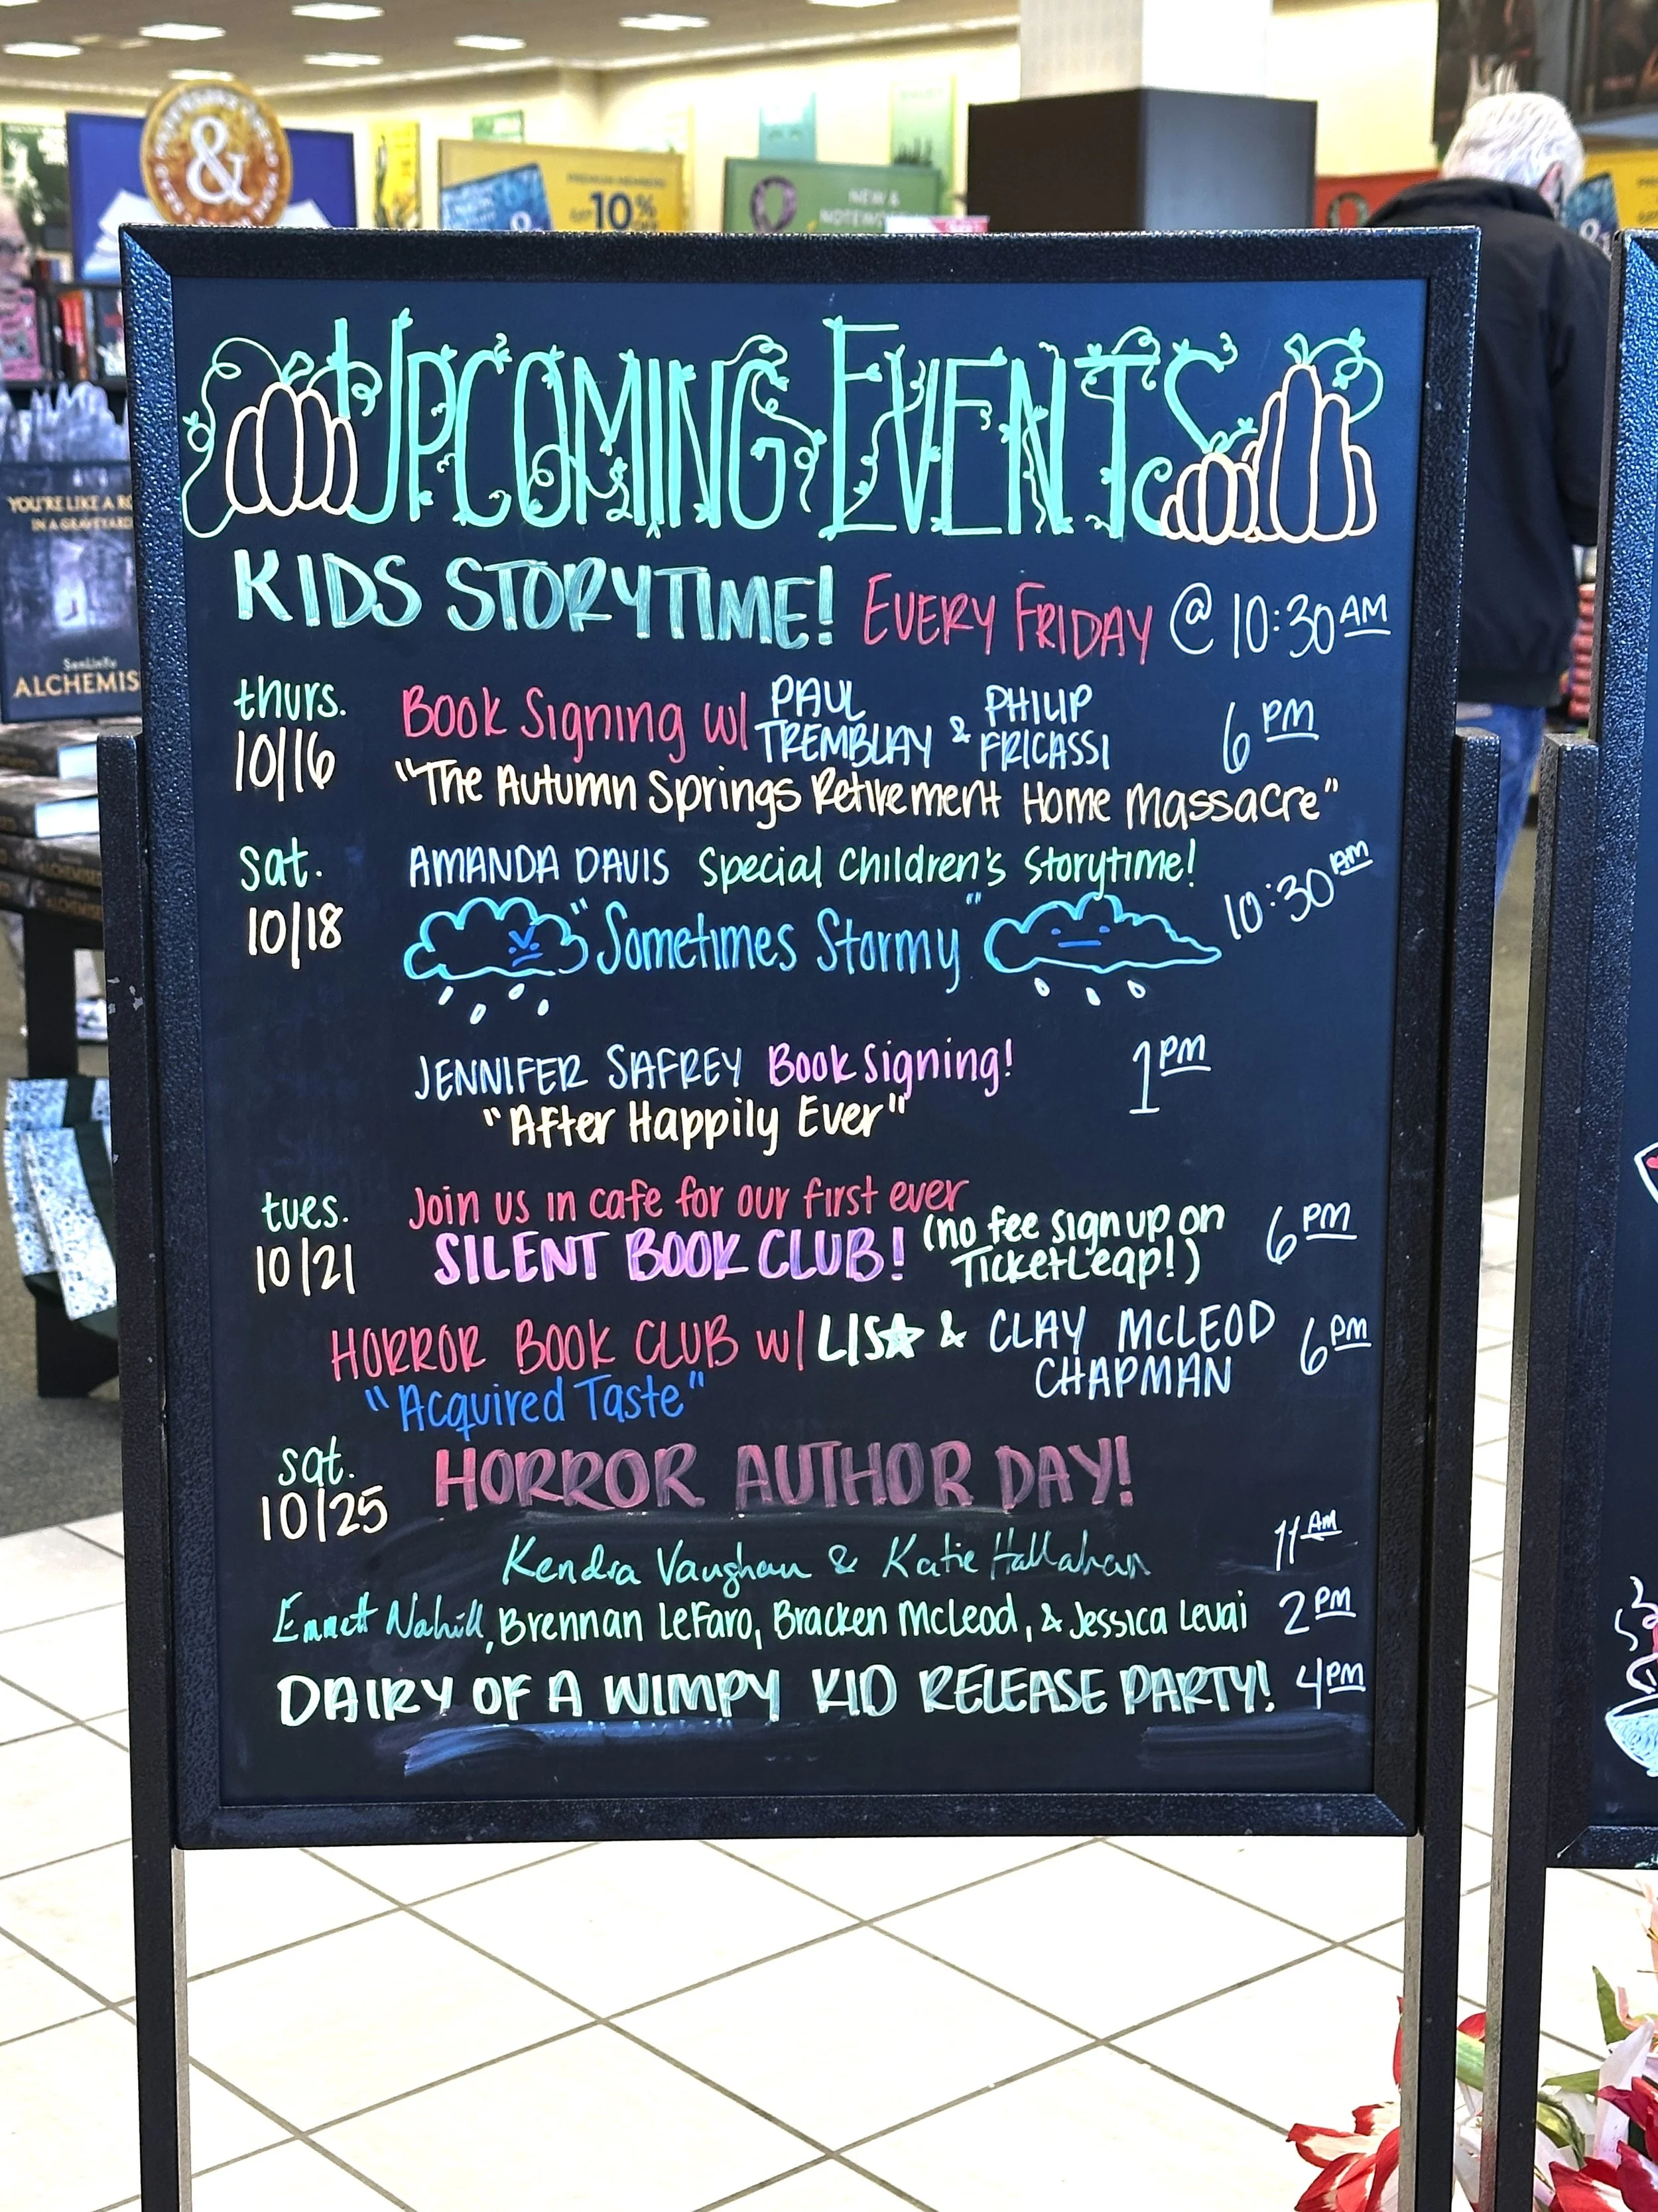 &
PREMIUM MEMBERS
GET 10%
NEW &
YOU'RE LIKE A
IN A GRAVEYARD
SenLinYu
ALCHEMIS
UPCOMING EVENTS
KIDS STORYTIME! EVERY FRIDAY @ 10:30 AM
thurs. 10/16
Book Signing w/ PAUL TREMBLAY & PHILIP FRICASSI 6 PM
"The Autumn Springs Retirement Home Massacre"
sat. 10/18
AMANDA DAVIS Special Children's Storytime! 10:30 AM
"Sometimes Stormy"
JENNIFER SAFREY Book Signing! 1 PM
"After Happily Ever"
tues. 10/21
Join us in cafe for our first ever
SILENT BOOK CLUB! (no fee sign up on TicketLeap!) 6 PM
HORROR BOOK CLUB w/ LISA & CLAY MCLEOD CHAPMAN 6 PM
"Acquired Taste"
sat. 10/25
HORROR AUTHOR DAY!
Kendra Vaughan & Katie Hallahan 11 AM
Emmett Nahill, Brennan LeFaro, Bracken McLeod, & Jessica Levai 2 PM
DAIRY OF A WIMPY KID RELEASE PARTY! 4 PM